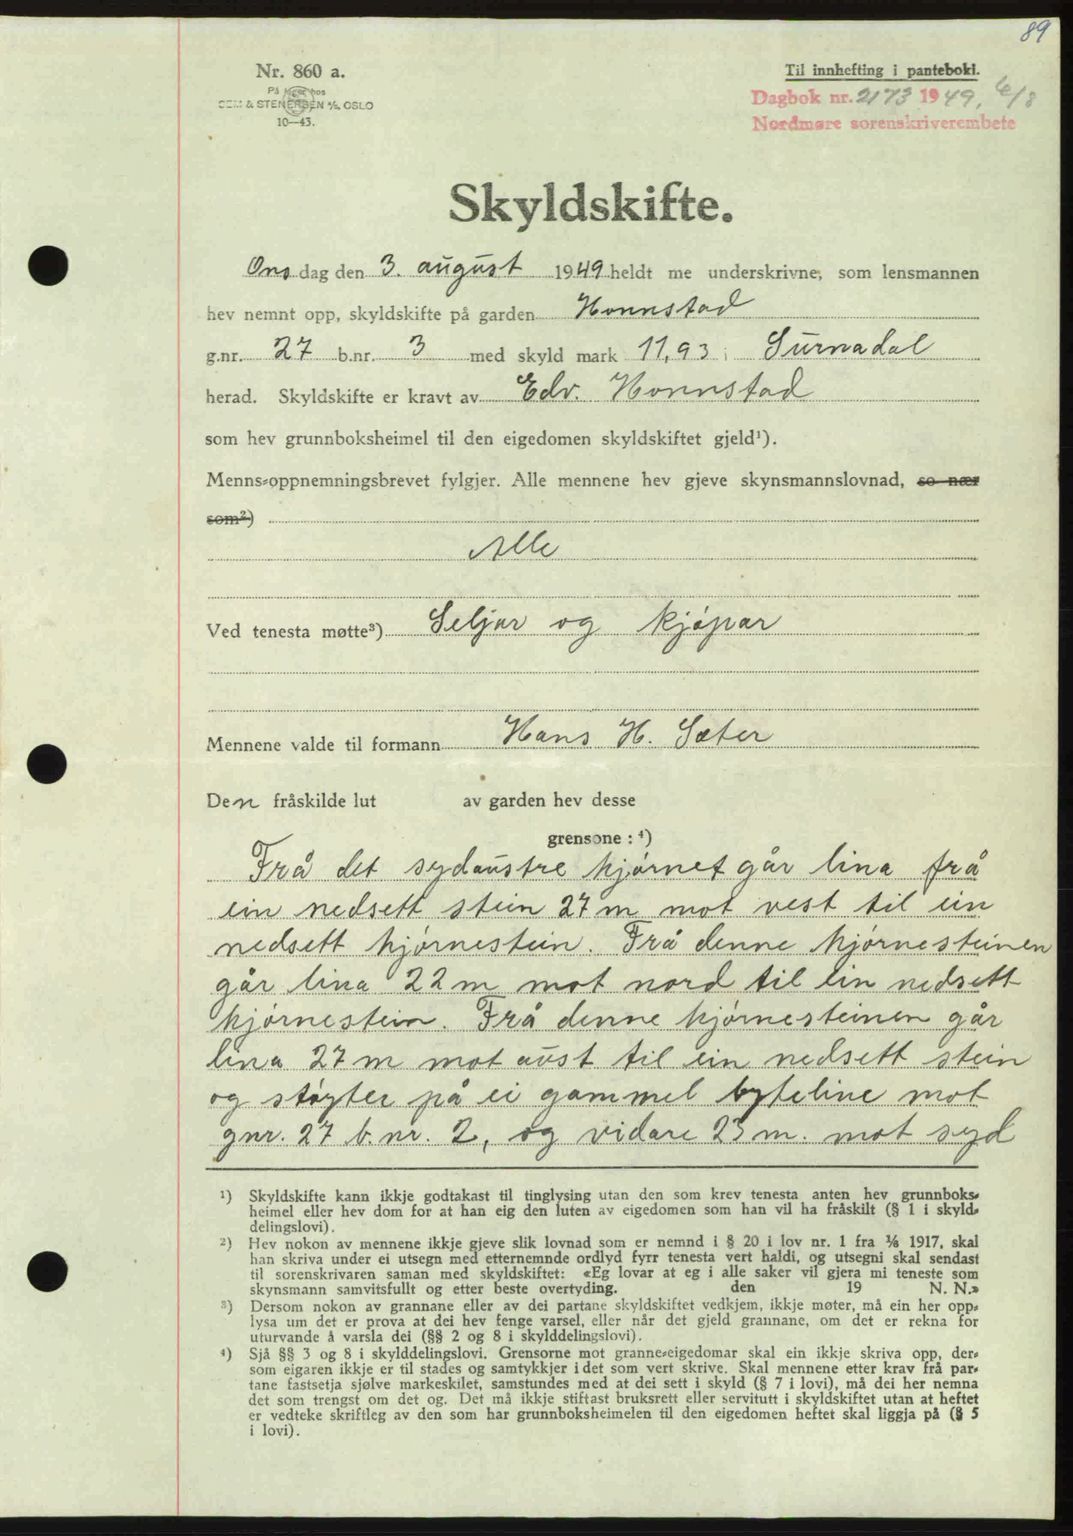 89
Nr. 860 a.
Til innhefting i pantebok.
På lager hos
SEM & STENERSEN A/S, OSLO
10—43.
Dagbok nr. 2173 1949, 6/8
Nordmøre sorenskriverembete
Skyldskifte.
Ons dag den 3. august 1949 heldt me underskrivne, som lensmannen
hev nemnt opp, skyldskifte på garden Honnstad
g.nr. 27 b.nr. 3 med skyld mark 11,93 i Surnadal
herad. Skyldskifte er kravt av Edv. Honnstad
som hev grunnboksheimel til den eigedomen skyldskiftet gjeld¹).
Menns-oppnemningsbrevet fylgjer. Alle mennene hev gjeve skynsmannslovnad, so nær
som²)
Alle
Ved tenesta møtte³) Seljar og kjøpar
Mennene valde til formann Hans H. Sæter
Den fråskilde lut av garden hev desse
grensone : ⁴)
Frå det sydaustre hjørnet går lina frå
ein nedsett stein 27 m mot vest til ein
nedsett hjørnestein. Frå denne hjørnesteinen
går lina 22 m mot nord til ein nedsett
hjørnestein. Frå denne hjørnesteinen går
lina 27 m mot aust til ein nedsett stein
og støyter på ei gammel byteline mot
gnr. 27 b.nr. 2, og vidare 23 m. mot syd
¹) Skyldskifte kann ikkje godtakast til tinglysing utan den som krev tenesta anten hev grunnboks-
heimel eller hev dom for at han eig den luten av eigedomen som han vil ha fråskilt (§ 1 i skyld-
delingslovi).
²) Hev nokon av mennene ikkje gjeve slik lovnad som er nemnd i § 20 i lov nr. 1 fra ⅛ 1917, skal
han skriva under ei utsegn med etternemnde ordlyd fyrr tenesta vert haldi, og utsegni skal sendast
til sorenskrivaren saman med skyldskiftet: «Eg lovar at eg i alle saker vil gjera mi teneste som
skynsmann samvitsfullt og etter beste overtyding. den 19 N. N.»
³) Dersom nokon av grannane eller av dei partane skyldskiftet vedkjem, ikkje møter, må ein her opp-
lysa um det er prova at dei hev fenge varsel, eller når det gjeld grannane, om det er rekna for
uturvande å varsla dei (§§ 2 og 8 i skylddelingslovi).
⁴) Sjå §§ 3 og 8 i skylddelingslovi. Grensorne mot granne-eigedomar skal ein ikkje skriva opp, der-
som eigaren ikkje er til stades og samtykkjer i det som vert skrive. Skal mennene etter krav frå par-
tane fastsetja sjølve markeskilet, samstundes med at dei sett i skyld (§ 7 i lovi), må dei her nemna
det som trengst om det og. Det må ikkje stiftast bruksrett eller servitutt i skyldskiftet utan at heftet
er vedteke skriftleg av den som har grunnboksheimelen til den eigedomen heftet skal liggja på (§ 5
i lovi).